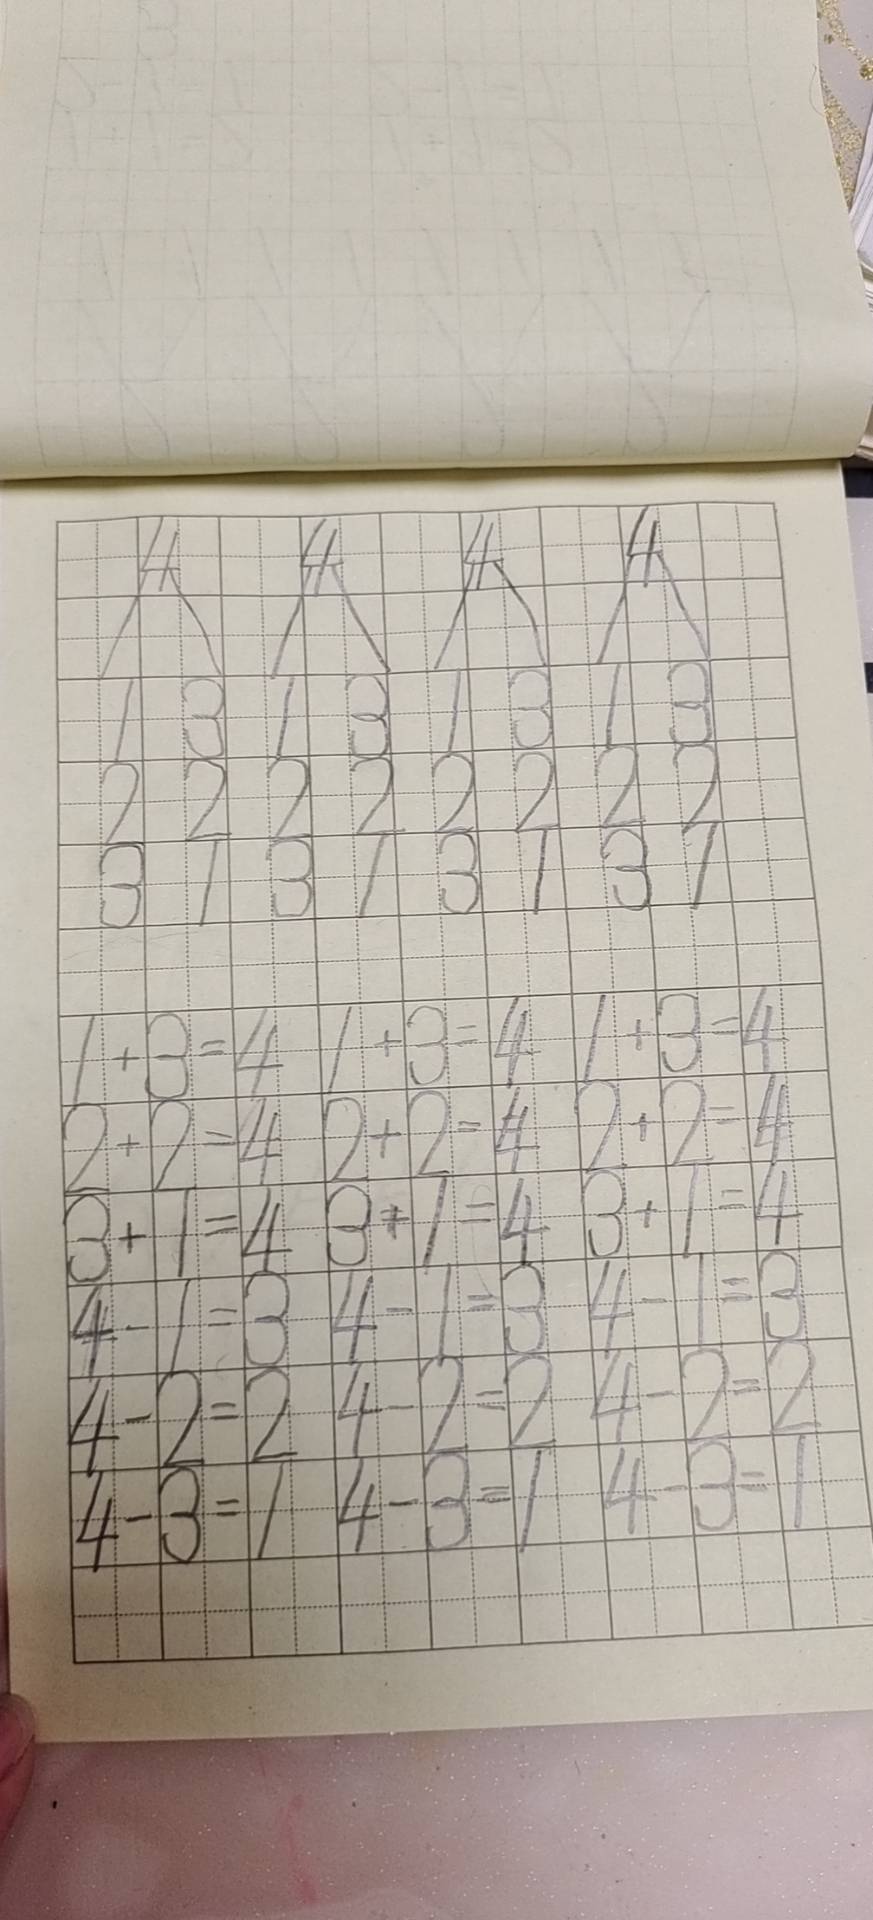 4 4 4 4
1 3 1 3 1 3 1 3
2 2 2 2 2 2 2 2
3 1 3 1 3 1 3 1
1+3=4 1+3=4 1+3=4
2+2=4 2+2=4 2+2=4
3+1=4 3+1=4 3+1=4
4-1=3 4-1=3 4-1=3
4-2=2 4-2=2 4-2=2
4-3=1 4-3=1 4-3=1